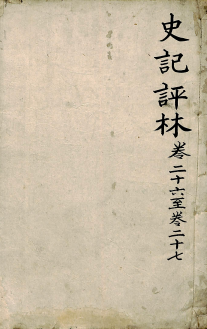 史記評林
卷二十六至卷二十七